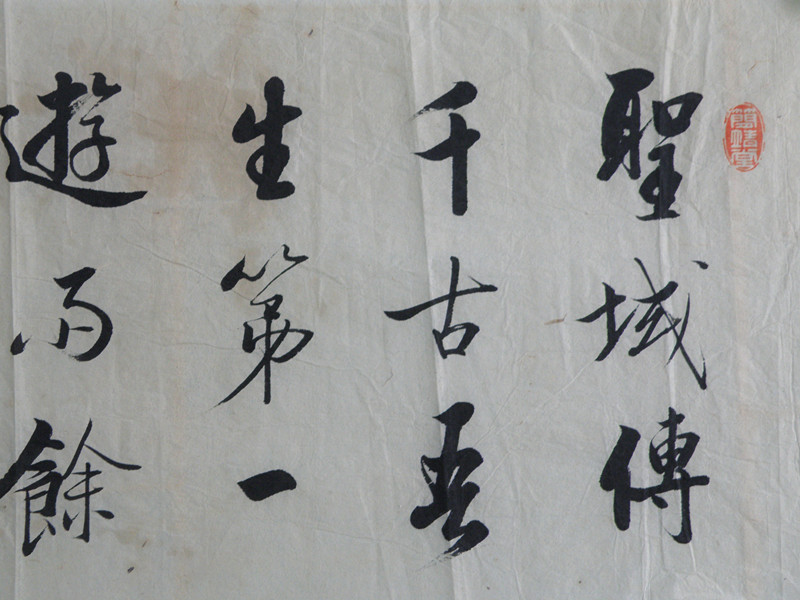 聖域傳
千古吾
生第一
遊雨餘